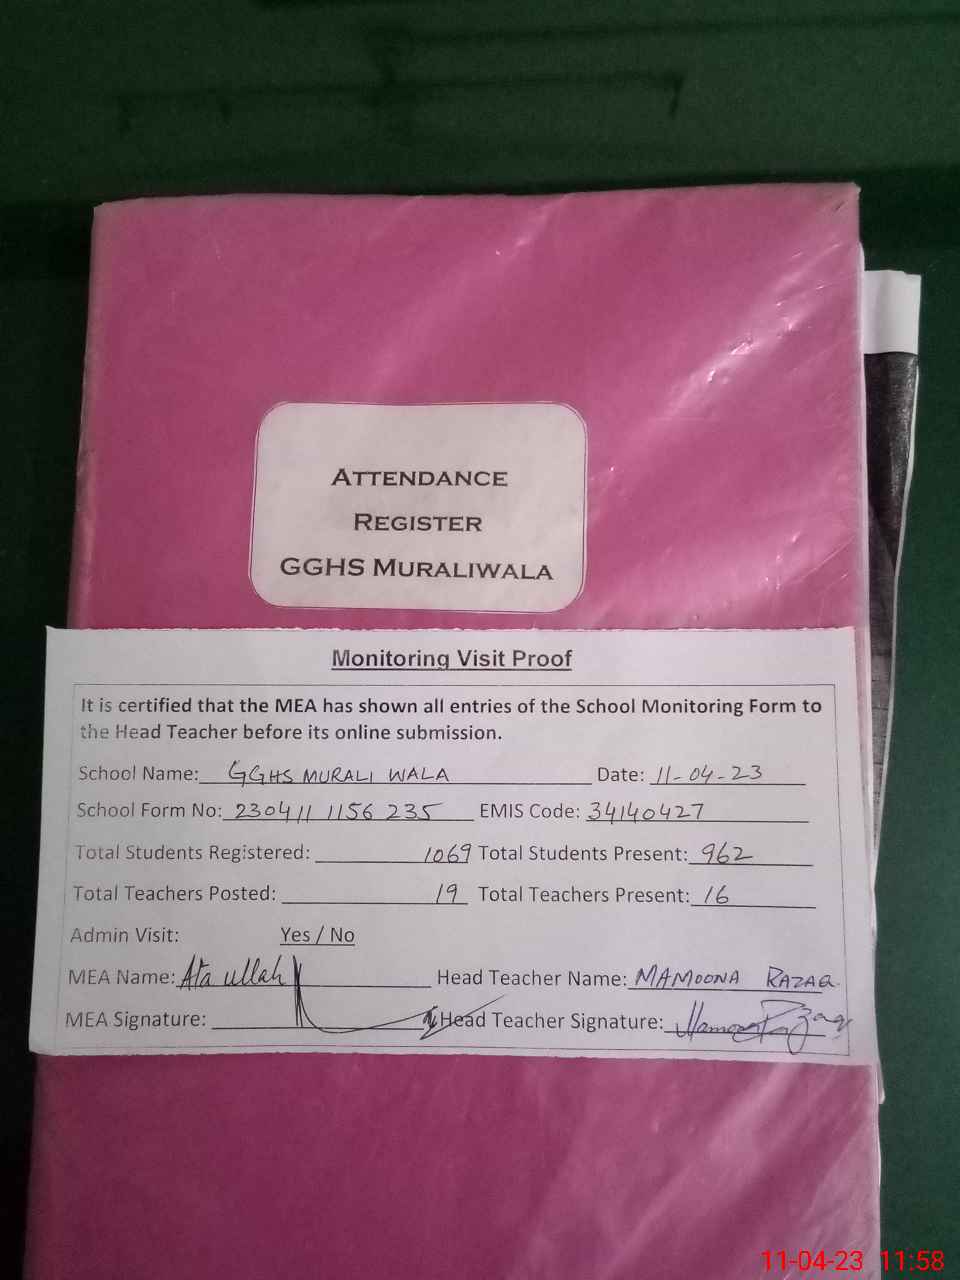 ATTENDANCE
REGISTER
GGHS MURALIWALA
Monitoring Visit Proof
It is certified that the MEA has shown all entries of the School Monitoring Form to
the Head Teacher before its online submission.
School Name: GGHS MURALI WALA Date: 11-04-23
School Form No: 230411 1156 235 EMIS Code: 34140427
Total Students Registered: 1069 Total Students Present: 962
Total Teachers Posted: 19 Total Teachers Present: 16
Admin Visit: Yes / No
MEA Name: Ata ullah Head Teacher Name: MAMOONA RAZAQ
MEA Signature: Head Teacher Signature: Mamoona Razaq
11-04-23 11:58